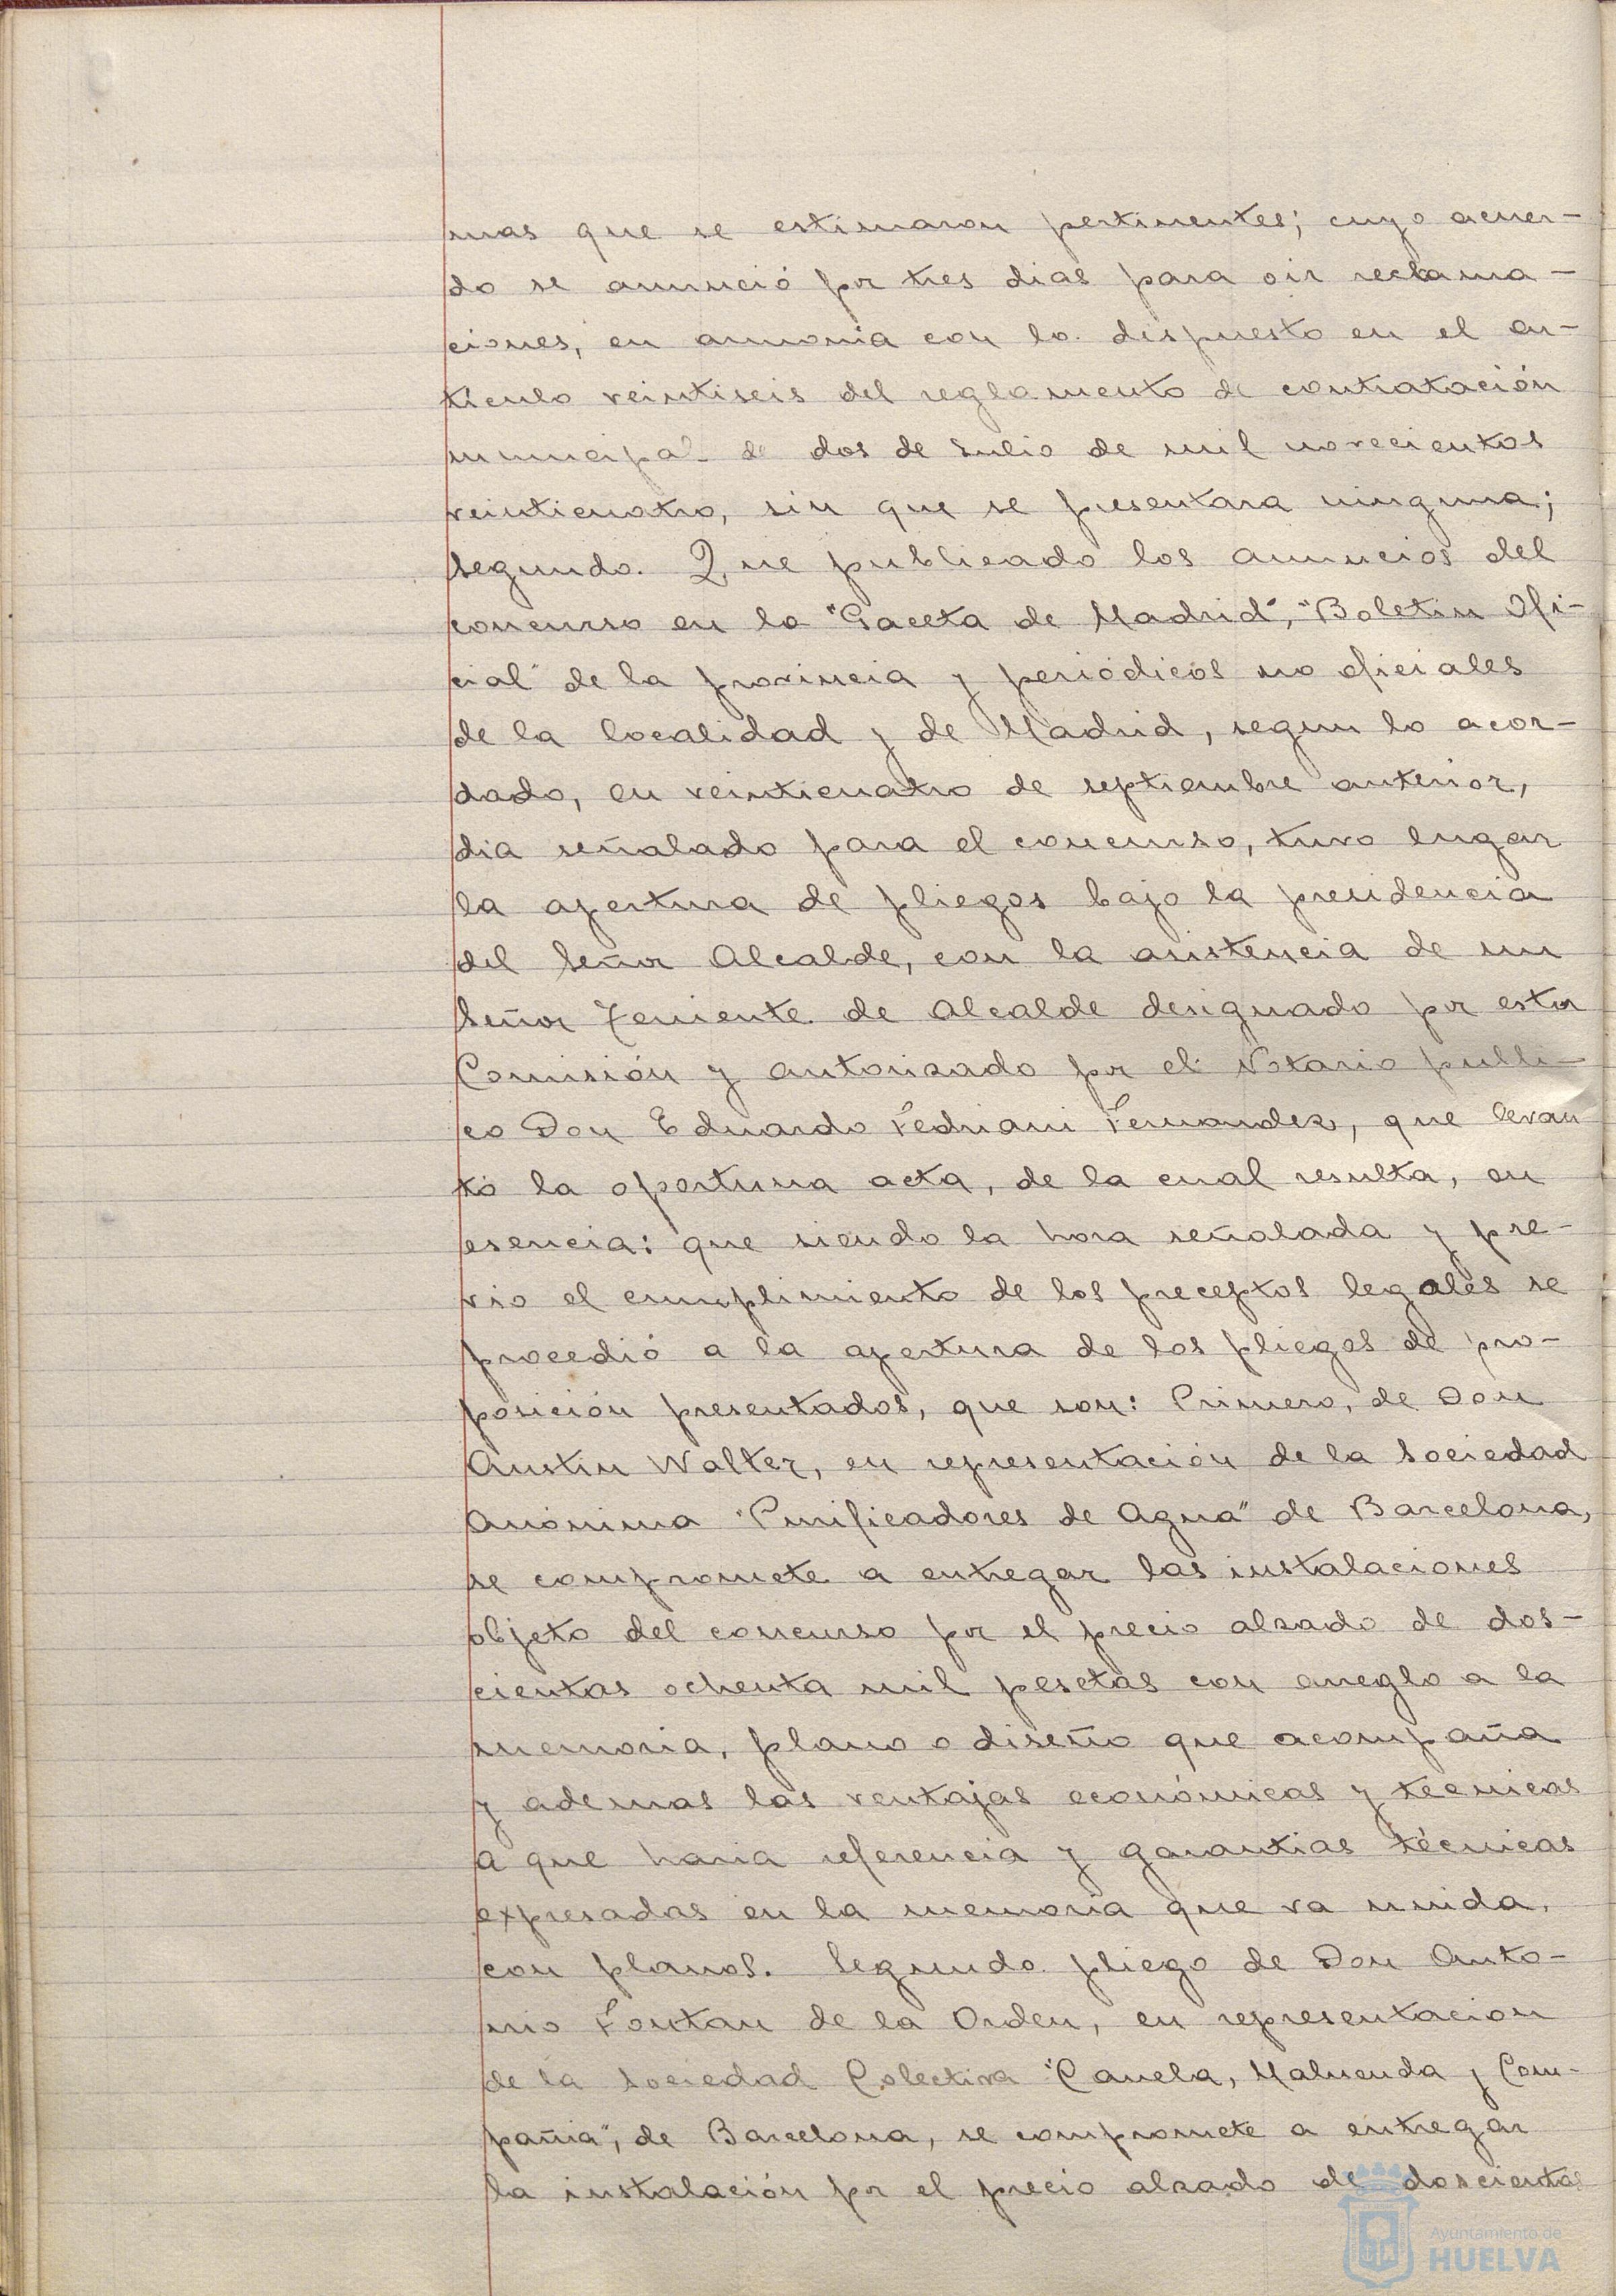 mas que se estimaron pertinentes; cuyo acuer-
do se anunció por tres dias para oir reclama-
ciones, en armonia con lo dispuesto en el ar-
tículo veintiseis del reglamento de contratación
municipal de dos de Julio de mil novecientos
veinticuatro, sin que se presentara ninguna;
segundo. Que publicado los anuncios del
concurso en la "Gaceta de Madrid", "Boletin Ofi-
cial" de la provincia y periódicos no oficiales
de la localidad y de Madrid, segun lo acor-
dado, en veinticuatro de septiembre anterior,
dia señalado para el concurso, tuvo lugar
la apertura de pliegos bajo la presidencia
del Señor Alcalde, con la asistencia de un
Señor Teniente de Alcalde designado por esta
Comisión y autorizado por el Notario públi-
co Don Eduardo Fedriani Fernandez, que levan
tó la oportuna acta, de la cual resulta, en
esencia: que siendo la hora señalada y pre-
vio el cumplimiento de los preceptos legales se
procedió a la apertura de los pliegos de pro-
posición presentados, que son: Primero, de Don
Austin Walter, en representación de la Sociedad
Anónima "Purificadores de Agua" de Barcelona,
se compromete a entregar las instalaciones
objeto del concurso por el precio alzado de dos-
cientas ochenta mil pesetas con arreglo a la
memoria, plano o diseño que acompaña
y ademas las ventajas económicas y tecnicas
a que haria referencia y garantias técnicas
expresadas en la memoria que va unida,
con planos. Segundo pliego de Don Anto-
nio Fontan de la Orden, en representacion
de la Sociedad Colectiva "Canela, Maluenda y Com-
pañia", de Barcelona, se compromete a entregar
la instalación por el precio alzado de doscientas
Ayuntamiento de
HUELVA